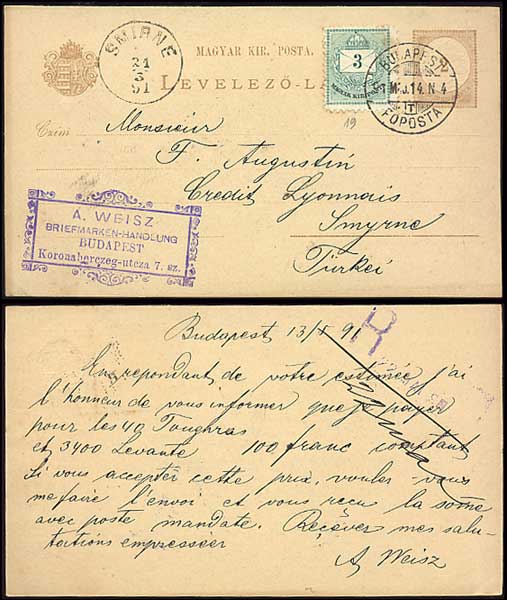 SMIRNE
21
5
91
MAGYAR KIR. POSTA.
LEVELEZŐ-LA
3
MAGYAR KIR. POSTA
BUDAPEST
14. N. 4
FŐPOSTA
19
Czim
Monsieur
F. Augustin
Credit Lyonnais
Smyrne
Türkei
A. WEISZ
BRIEFMARKEN-HANDLUNG
BUDAPEST
Koronaherczeg-utcza 7. sz.
Budapest 13/V 91
R
En repondant de vôtre estimée j'ai
l'honneur de vous informer que je payer
pour les 40 Toughras
et 3400 Levante 100 franc comptant
Si vous accepter cette prix, voulez-vous
me faire l'envoi et vous recu la some
avec poste mandate. Reçevez mes salu-
tations empresséer
A. Weisz